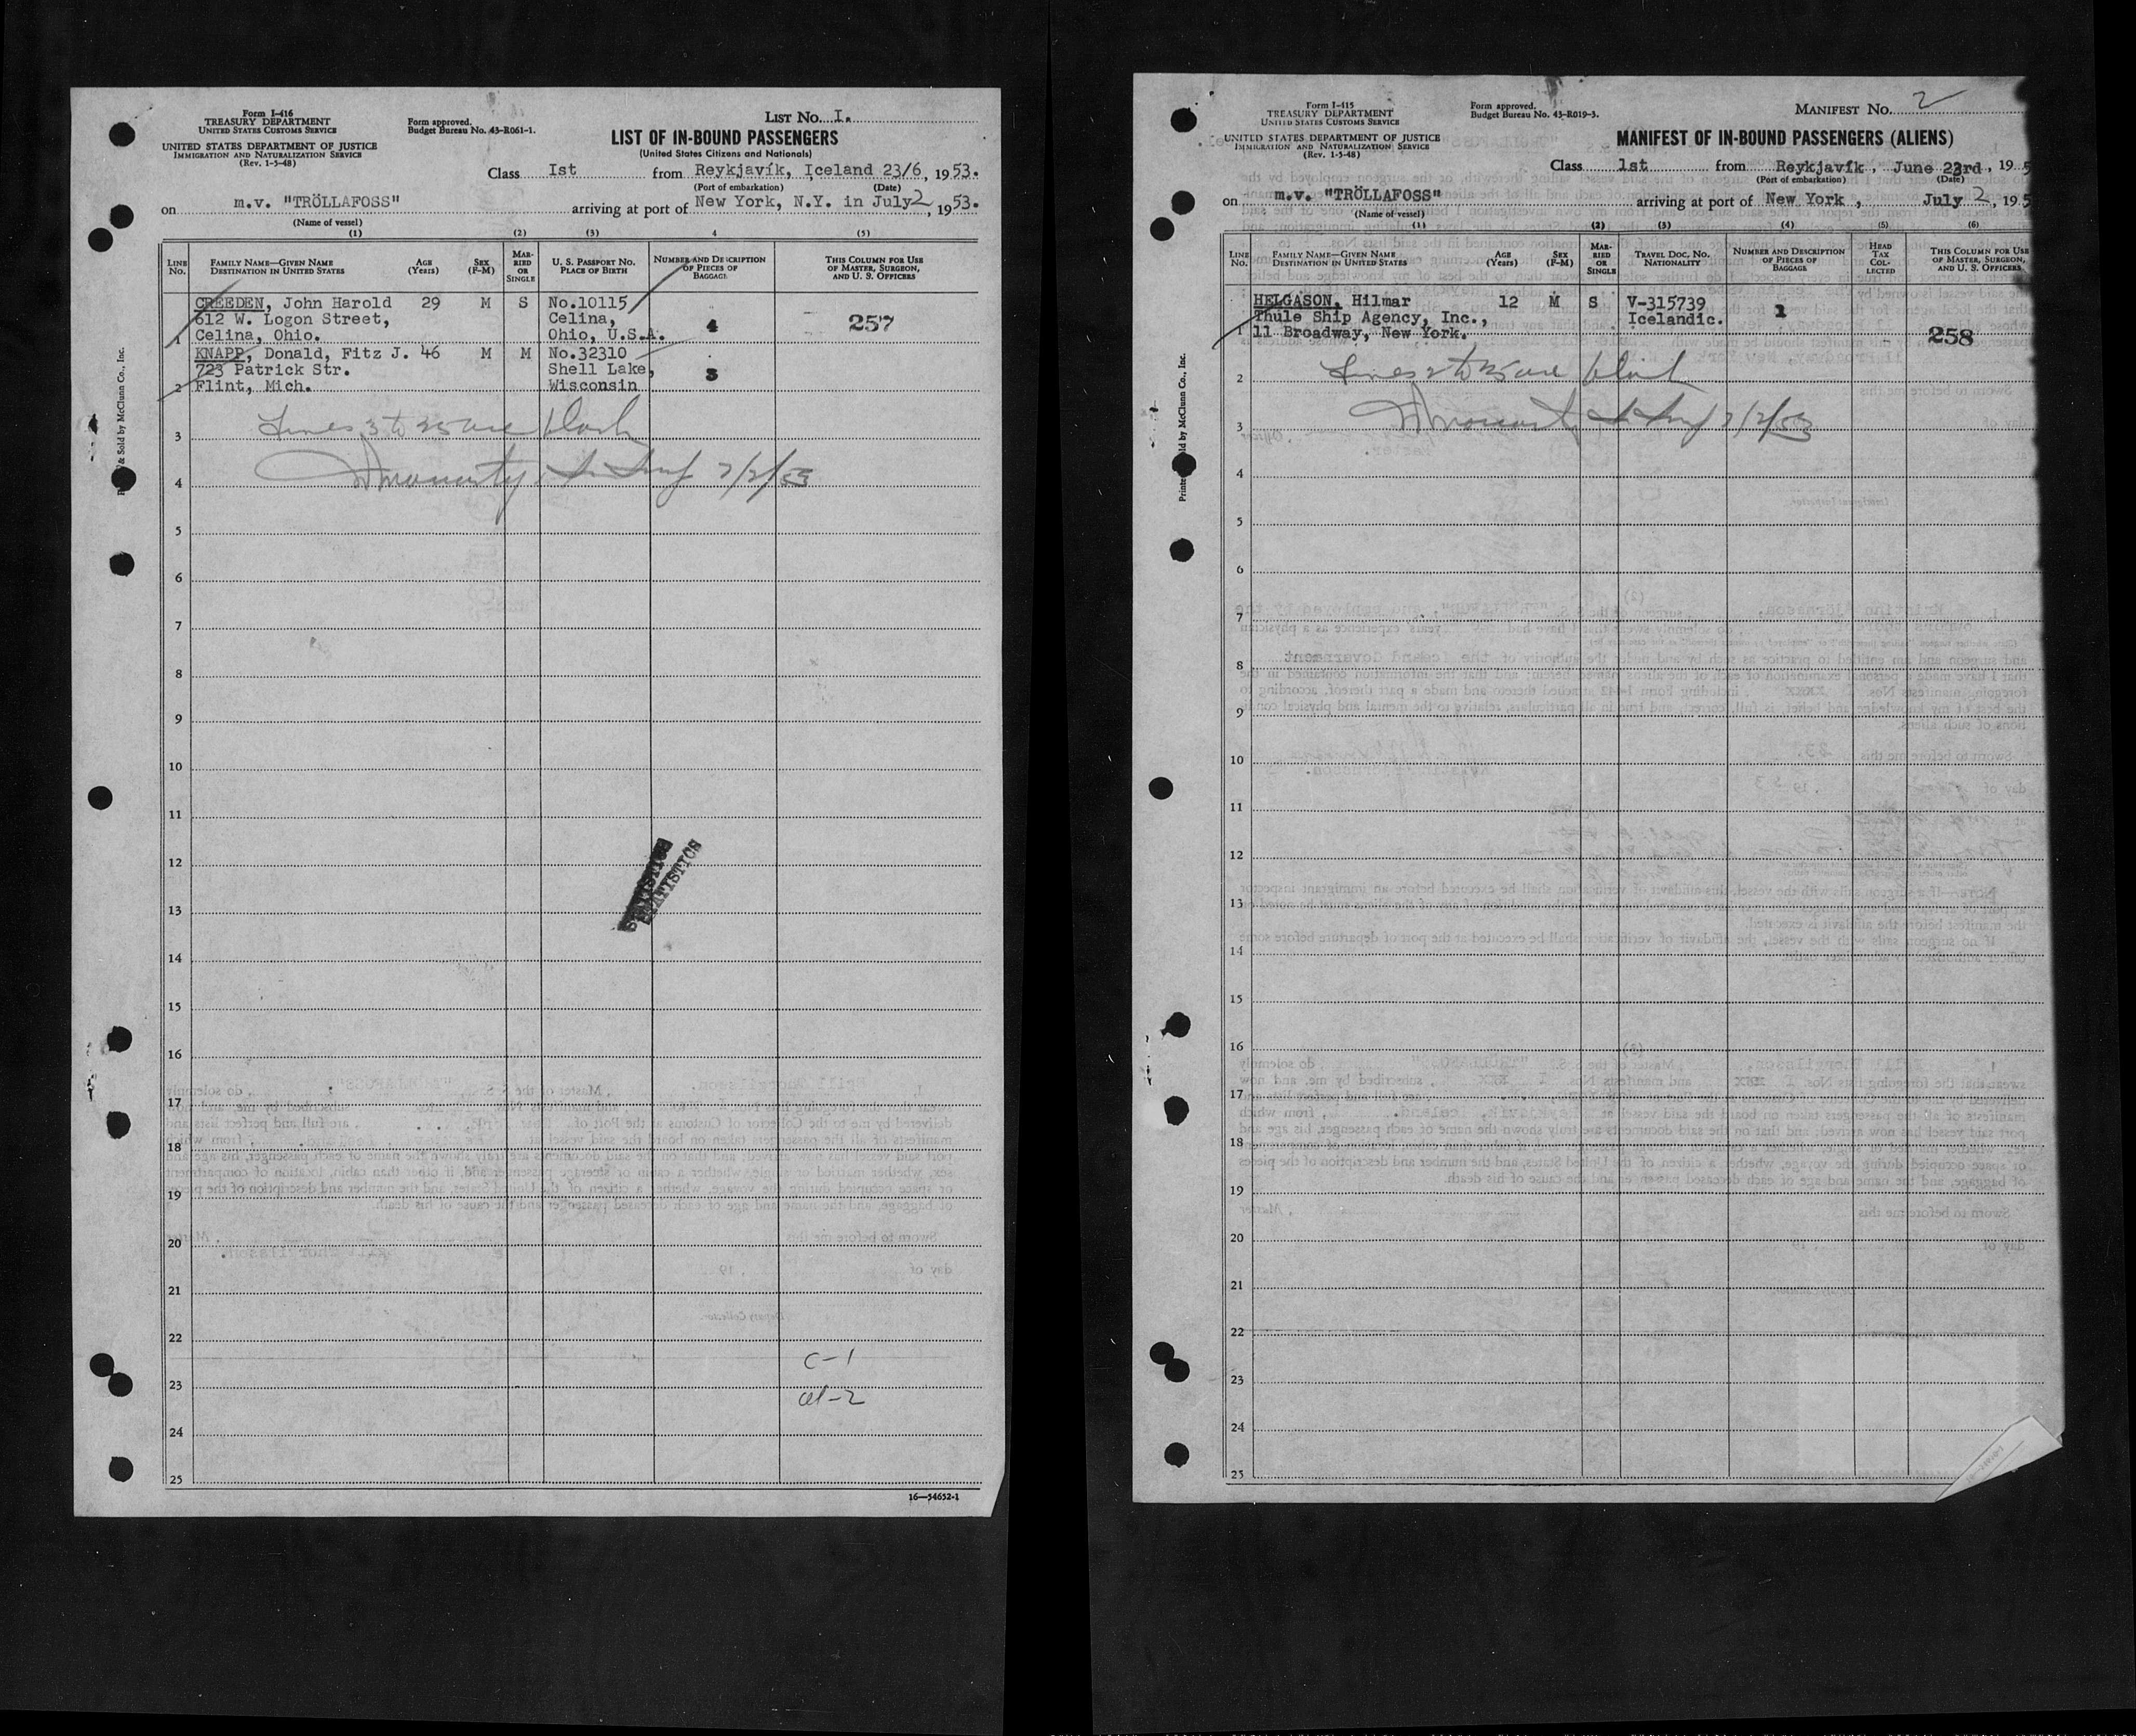 Form I-416
TREASURY DEPARTMENT
UNITED STATES CUSTOMS SERVICE
UNITED STATES DEPARTMENT OF JUSTICE
IMMIGRATION AND NATURALIZATION SERVICE
(Rev. 1-5-48)
Form approved.
Budget Bureau No. 43-R061-1.
LIST No. I.
LIST OF IN-BOUND PASSENGERS
(United States Citizens and Nationals)
Class Ist from Reykjavík, Iceland 23/6, 1953.
(Port of embarkation) (Date)
on m.v. "TRÖLLAFOSS" arriving at port of New York, N.Y. in July 2, 1953.
(Name of vessel)
(1) (2) (3) 4 (5)
LINE No. FAMILY NAME—GIVEN NAME DESTINATION IN UNITED STATES AGE (Years) SEX (F-M) MARRIED OR SINGLE U. S. PASSPORT NO. PLACE OF BIRTH NUMBER AND DESCRIPTION OF PIECES OF BAGGAGE THIS COLUMN FOR USE OF MASTER, SURGEON, AND U. S. OFFICERS
CREEDEN, John Harold 29 M S No.10115
612 W. Logon Street, Celina, 4 257
1 Celina, Ohio. Ohio, U.S.A.
KNAPP, Donald, Fitz J. 46 M M No.32310
723 Patrick Str. Shell Lake, 3
2 Flint, Mich. Wisconsin
Lines 3 to 25 are blank
3
4 7/2/53
5
6
7
8
9
10
11
12
STATISTICS
STATISTICS
13
14
15
16
17
18
19
20
21
22
C-1
23
24
25
16—54652-1
Printed & Sold by McClunn Co., Inc.
Form I-415
TREASURY DEPARTMENT
UNITED STATES CUSTOMS SERVICE
UNITED STATES DEPARTMENT OF JUSTICE
IMMIGRATION AND NATURALIZATION SERVICE
(Rev. 1-5-48)
Form approved.
Budget Bureau No. 43-R019-3.
MANIFEST No. 2
MANIFEST OF IN-BOUND PASSENGERS (ALIENS)
Class 1st from Reykjavík, June 23rd, 195
(Port of embarkation) (Date)
on m.v. "TRÖLLAFOSS" arriving at port of New York, July 2, 195
(Name of vessel)
(1) (2) (3) (4) (5) (6)
LINE No. FAMILY NAME—GIVEN NAME DESTINATION IN UNITED STATES AGE (Years) SEX (F-M) MARRIED OR SINGLE TRAVEL DOC. NO. NATIONALITY NUMBER AND DESCRIPTION OF PIECES OF BAGGAGE HEAD TAX COLLECTED THIS COLUMN FOR USE OF MASTER, SURGEON, AND U. S. OFFICERS
HELGASON, Hilmar 12 M S V-315739 1
Thule Ship Agency, Inc., Icelandic.
1 11 Broadway, New York. 258
Lines 2 to 25 are blank
2
3 7/2/53
4
5
6
7
8
9
10
11
12
13
14
15
16
17
18
19
20
21
22
23
24
25
Printed & Sold by McClunn Co., Inc.